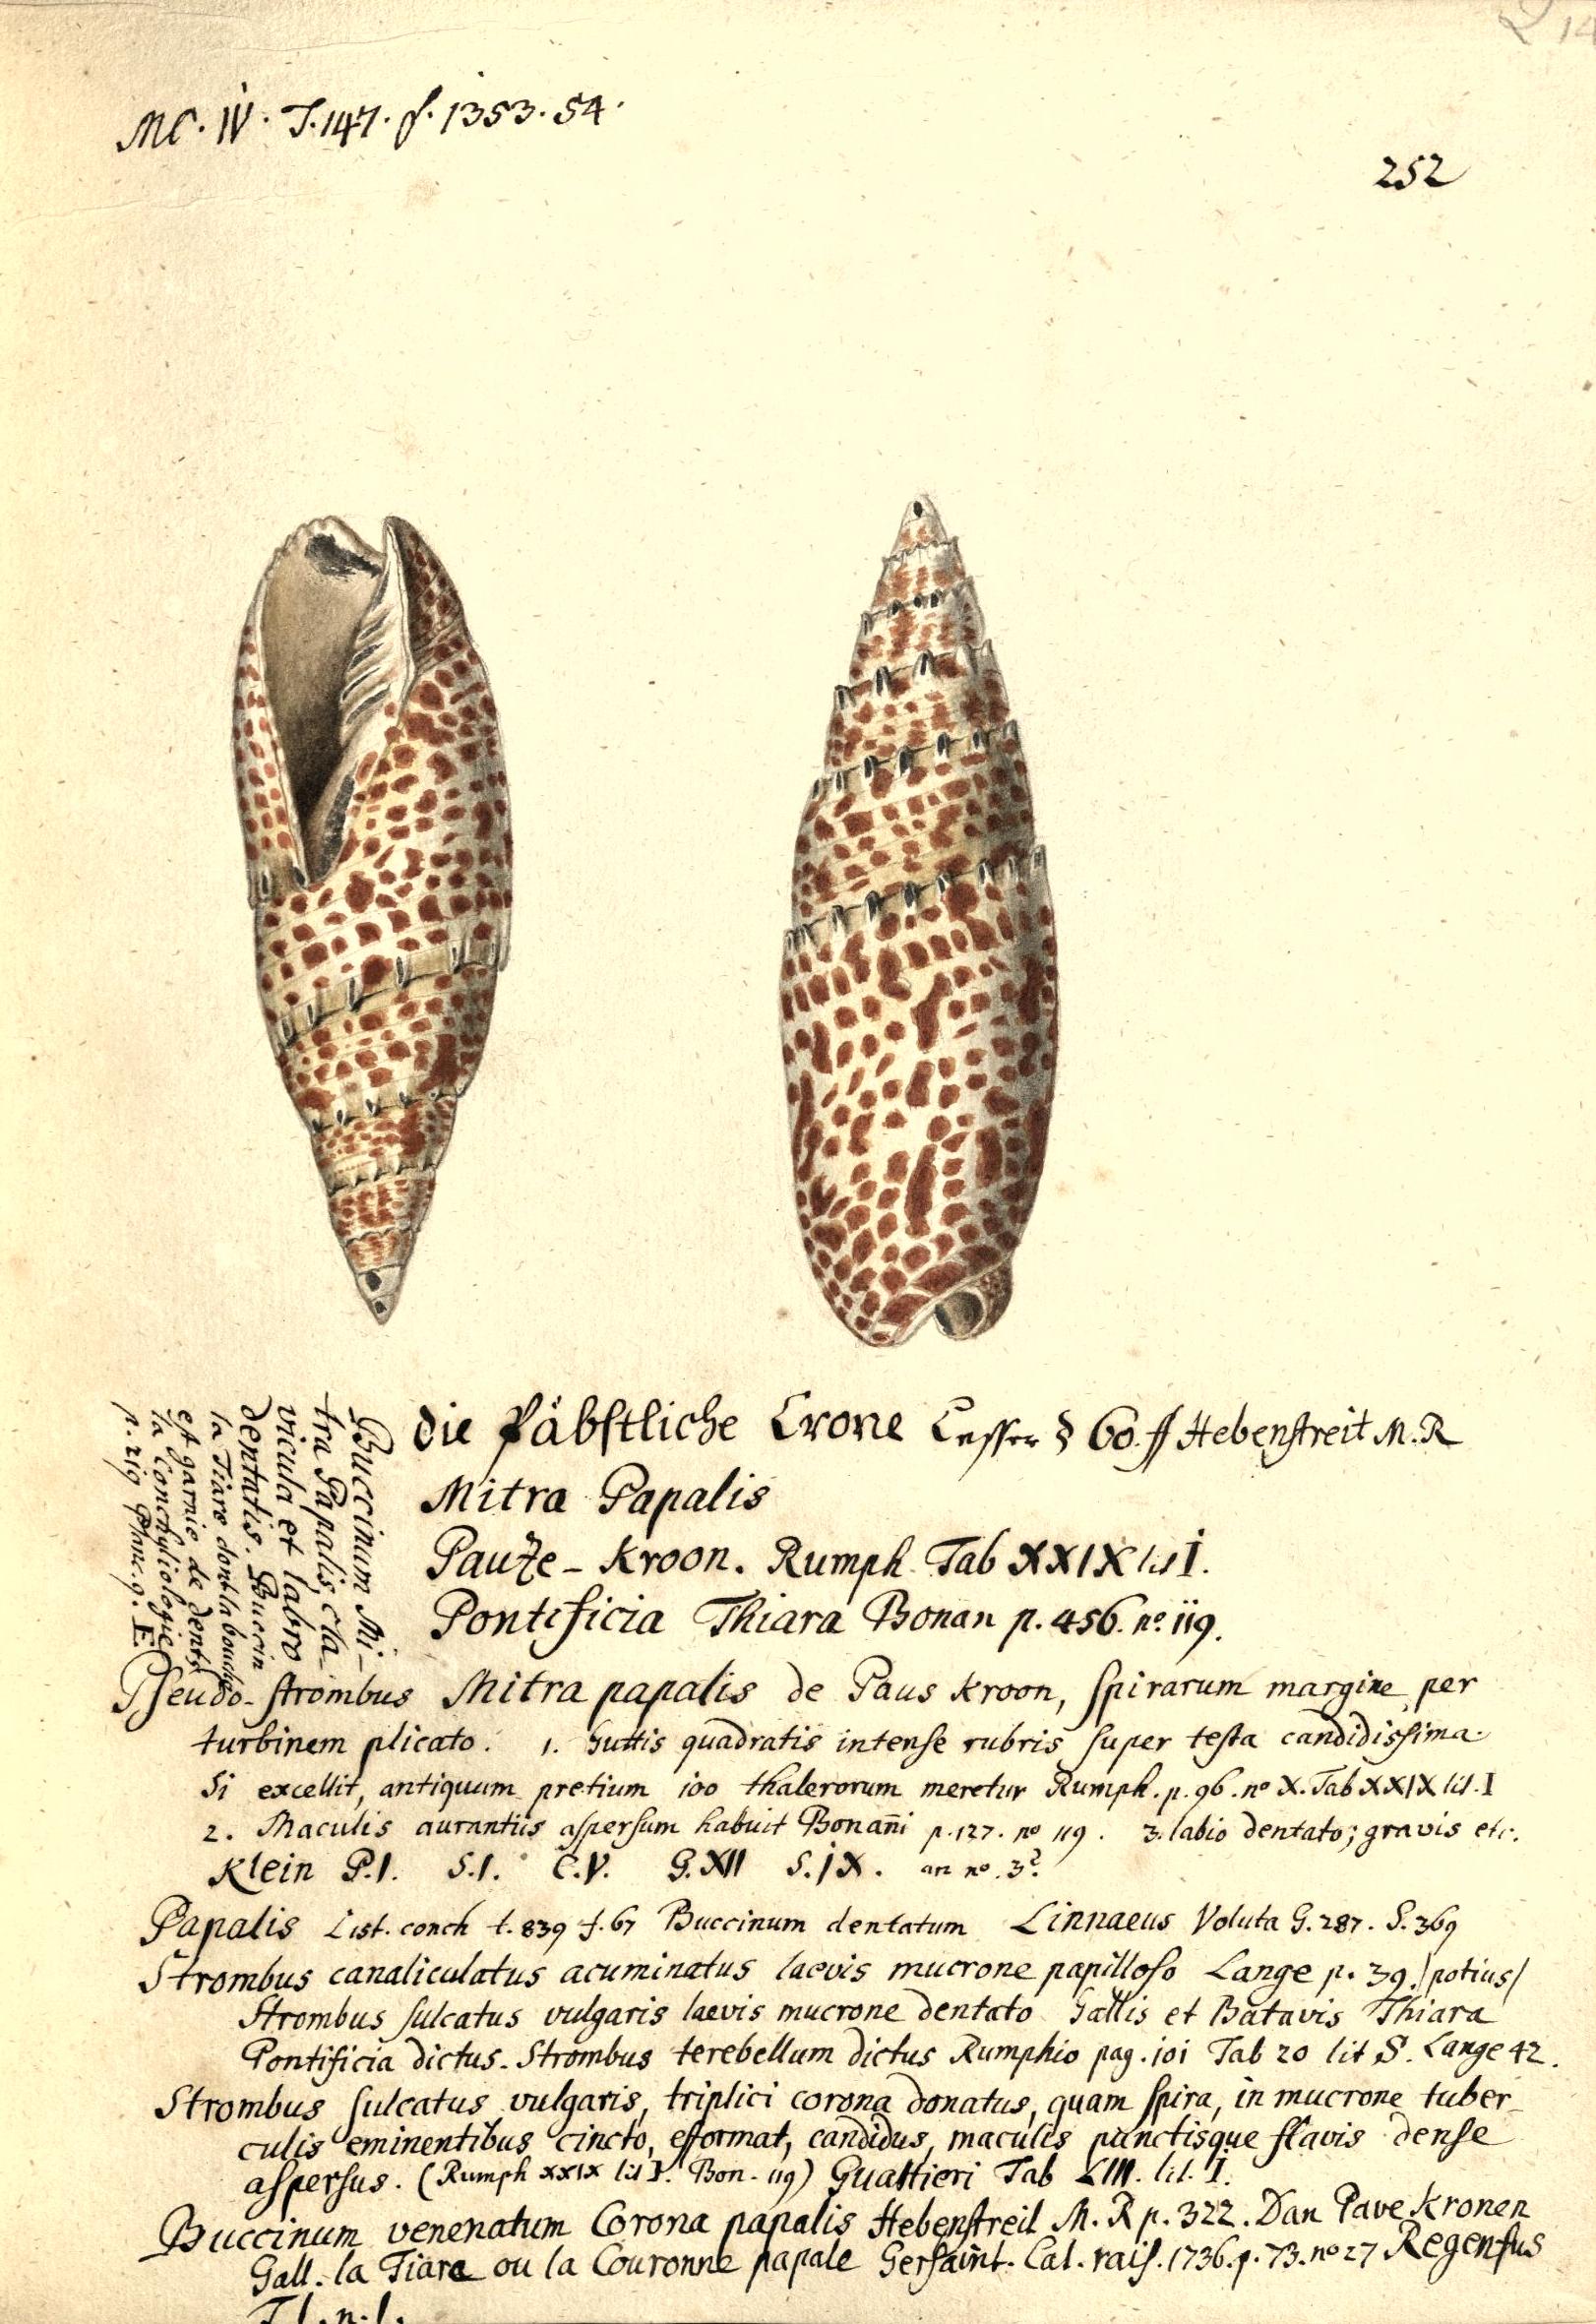 MC. IV. T. 147. f. 1353. 54.
252
die Päbstliche Crone Lesser § 60. ff Hebenstreit M. R
Mitra Papalis
Pauze - Kroon. Rumph Tab XXIX lit I.
Pontificia Thiara Bonan p. 456. no. 119.
Buccinum Mi-
tra Papalis, cla-
vicula et labro
dentatis. Buccin
la Tiare dont la bouche
est garnie de dents
la Conchyliologie
p. 219 Planc. 9. E
Pseudo-strombus Mitra papalis de Paus Kroon, spirarum margine per
turbinem plicato. 1. Guttis quadratis intense rubris super testa candidissima
Si excellit, antiquum pretium 100 thalerorum meretur Rumph. p. 96. no X. Tab XXIX lit. I
2. Maculis aurantiis aspersum habuit Bonañi p. 127. no 119. 3. labio dentato; gravis etc.
Klein P.I. S.I. C.V. G.XII S.IX. an no. 3?
Papalis List. conch t. 839 f. 67 Buccinum dentatum Linnaeus Voluta G. 287. S. 369
Strombus canaliculatus acuminatus laevis mucrone papilloso Lange p. 39. /potius/
Strombus sulcatus vulgaris laevis mucrone dentato Gallis et Batavis Thiara
Pontificia dictus. Strombus terebellum dictus Rumphio pag. 101 Tab 20 lit S. Lange 42.
Strombus sulcatus vulgaris, triplici corona donatus, quam spira, in mucrone tuber-
culis eminentibus cincto, efformat, candidus, maculis punctisque flavis dense
aspersus. (Rumph XXIX lit I. Bon. 119) Gualtieri Tab LIII. lit. I.
Buccinum venenatum Corona papalis Hebenstreit M. R p. 322. Dan Pave Kronen
Gall. la Tiare ou la Couronne papale Gersaint. Cat. rais. 1736. p. 73. no 27 Regensfus
T. I. n. I.